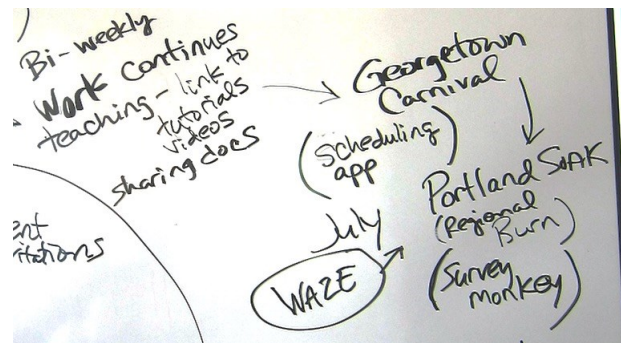 Bi-weekly
Work continues
teaching - link to
tutorials
videos
sharing docs
Georgetown
Carnival
(scheduling
app)
Portland SOAK
(Regional
Burn)
(Survey
monkey)
July
WAZE